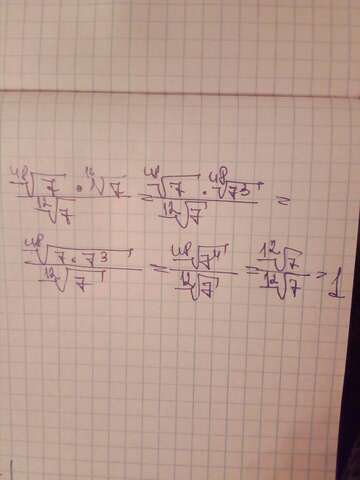 ⁴⁸√7 · ¹⁶√7 / ¹²√7 = ⁴⁸√7 · ⁴⁸√7³ / ¹²√7 =
⁴⁸√7·7³ / ¹²√7 = ⁴⁸√7⁴ / ¹²√7 = ¹²√7 / ¹²√7 = 1